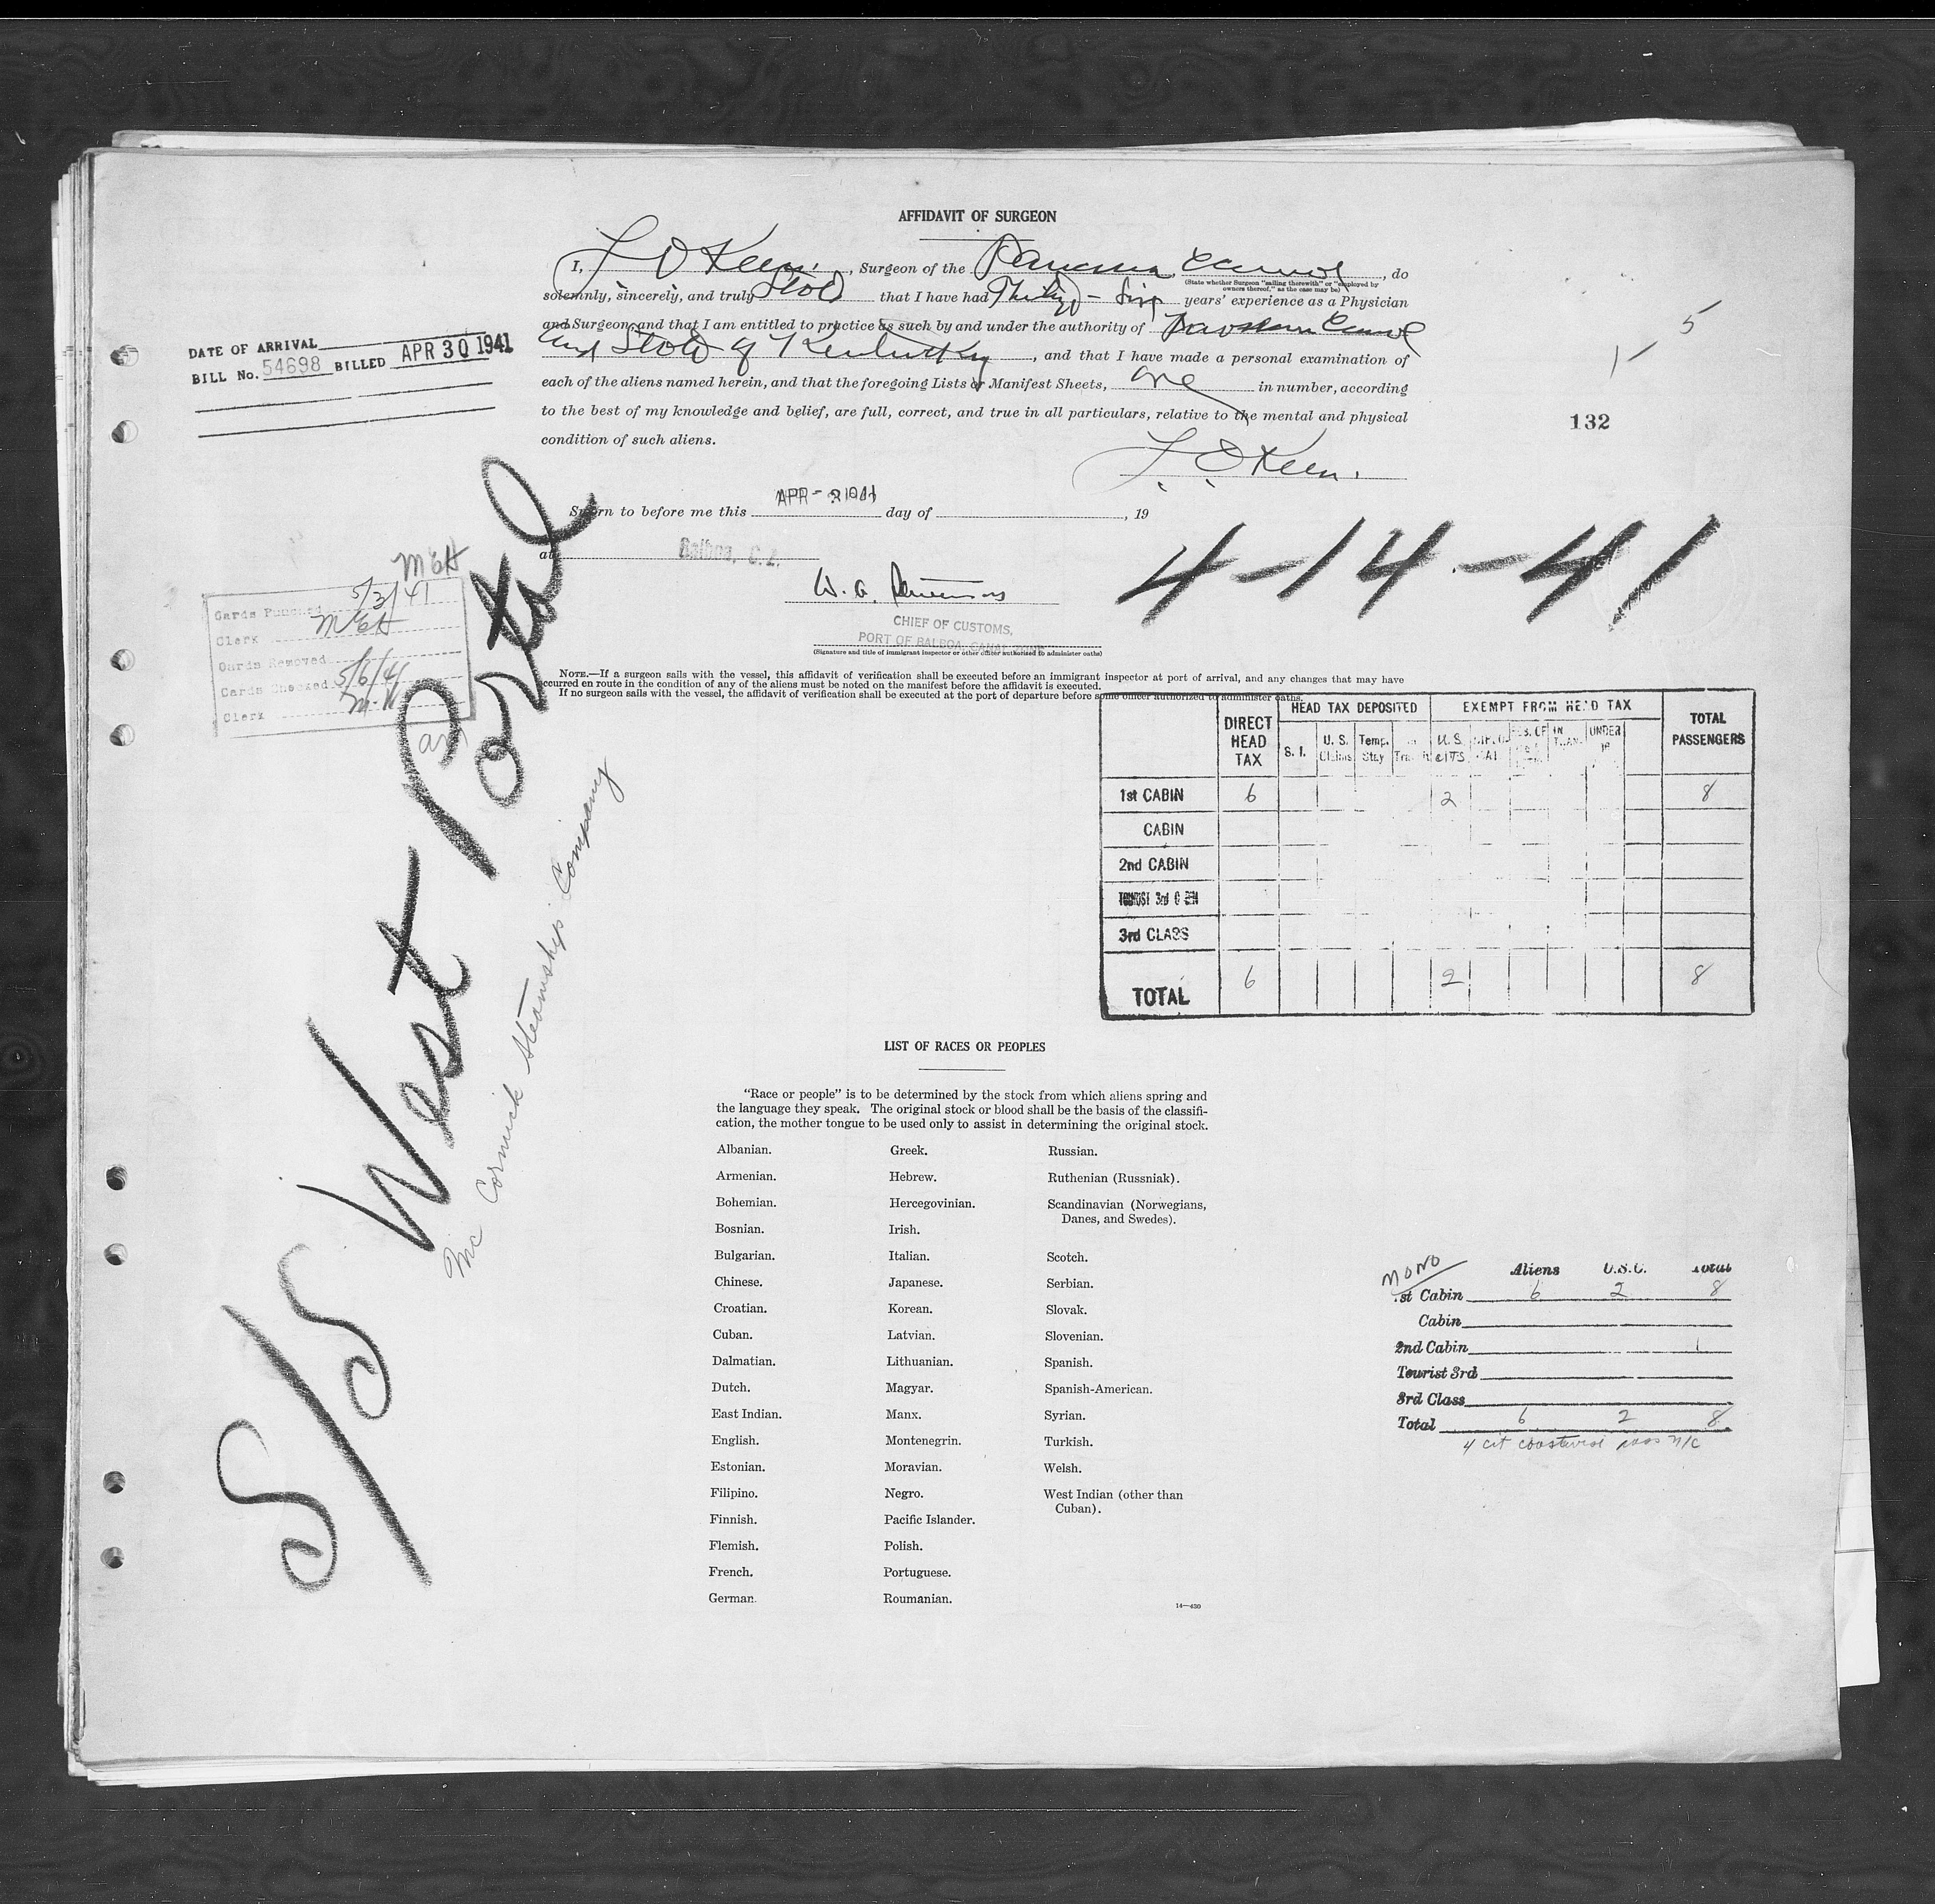 AFFIDAVIT OF SURGEON
I, L O Keen, Surgeon of the Panama Canal, do
(State whether Surgeon "sailing therewith" or "employed by
owners thereof," as the case may be)
solemnly, sincerely, and truly that I have had Thirty-Six years' experience as a Physician
and Surgeon, and that I am entitled to practice as such by and under the authority of Canal
and State of Kentucky, and that I have made a personal examination of
each of the aliens named herein, and that the foregoing Lists or Manifest Sheets, one in number, according
to the best of my knowledge and belief, are full, correct, and true in all particulars, relative to the mental and physical
condition of such aliens.
L. O Keen.
Sworn to before me this APR - 1941 day of , 19
at Balboa, C.Z.
W. G.
CHIEF OF CUSTOMS,
PORT OF BALBOA, CANAL ZONE
(Signature and title of immigrant inspector or other officer authorized to administer oaths)
NOTE.—If a surgeon sails with the vessel, this affidavit of verification shall be executed before an immigrant inspector at port of arrival, and any changes that may have
occurred en route in the condition of any of the aliens must be noted on the manifest before the affidavit is executed.
If no surgeon sails with the vessel, the affidavit of verification shall be executed at the port of departure before some officer authorized to administer oaths.
DATE OF ARRIVAL
BILL No. 54698 BILLED APR 30 1941
5
132
4-14-41
MEH
Cards Punched 5/3/41
Clerk MEH
Cards Removed
Cards Checked 5/6/41
Clerk M.H
S/S West Portal
Mc Cormick Steamship Company
DIRECT HEAD TAX
HEAD TAX DEPOSITED
EXEMPT FROM HEAD TAX
TOTAL PASSENGERS
S. I. U. S. Claims Temp. Stay Transit U.S. CITS IN TRAN. UNDER 16
1st CABIN 6 2 8
CABIN
2nd CABIN
TOURIST 3rd CABIN
3rd CLASS
TOTAL 6 2 8
LIST OF RACES OR PEOPLES
"Race or people" is to be determined by the stock from which aliens spring and
the language they speak. The original stock or blood shall be the basis of the classifi-
cation, the mother tongue to be used only to assist in determining the original stock.
Albanian.
Armenian.
Bohemian.
Bosnian.
Bulgarian.
Chinese.
Croatian.
Cuban.
Dalmatian.
Dutch.
East Indian.
English.
Estonian.
Filipino.
Finnish.
Flemish.
French.
German.
Greek.
Hebrew.
Hercegovinian.
Irish.
Italian.
Japanese.
Korean.
Latvian.
Lithuanian.
Magyar.
Manx.
Montenegrin.
Moravian.
Negro.
Pacific Islander.
Polish.
Portuguese.
Roumanian.
Russian.
Ruthenian (Russniak).
Scandinavian (Norwegians,
Danes, and Swedes).
Scotch.
Serbian.
Slovak.
Slovenian.
Spanish.
Spanish-American.
Syrian.
Turkish.
Welsh.
West Indian (other than
Cuban).
14—430
MONO
Aliens U.S.C. Total
1st Cabin 6 2 8
Cabin
2nd Cabin
Tourist 3rd
3rd Class
Total 6 2 8
4 cit coastwise pass n/c